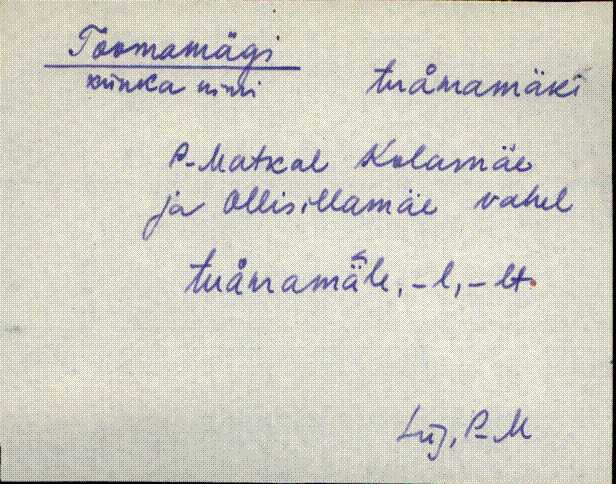 Toomamägi
künka nimi
tuåmamäki
P-Matkal Kolamäe
ja Ollisillamäe vahel
tuåmamäle, -l, -lt.
Lüg, P-M